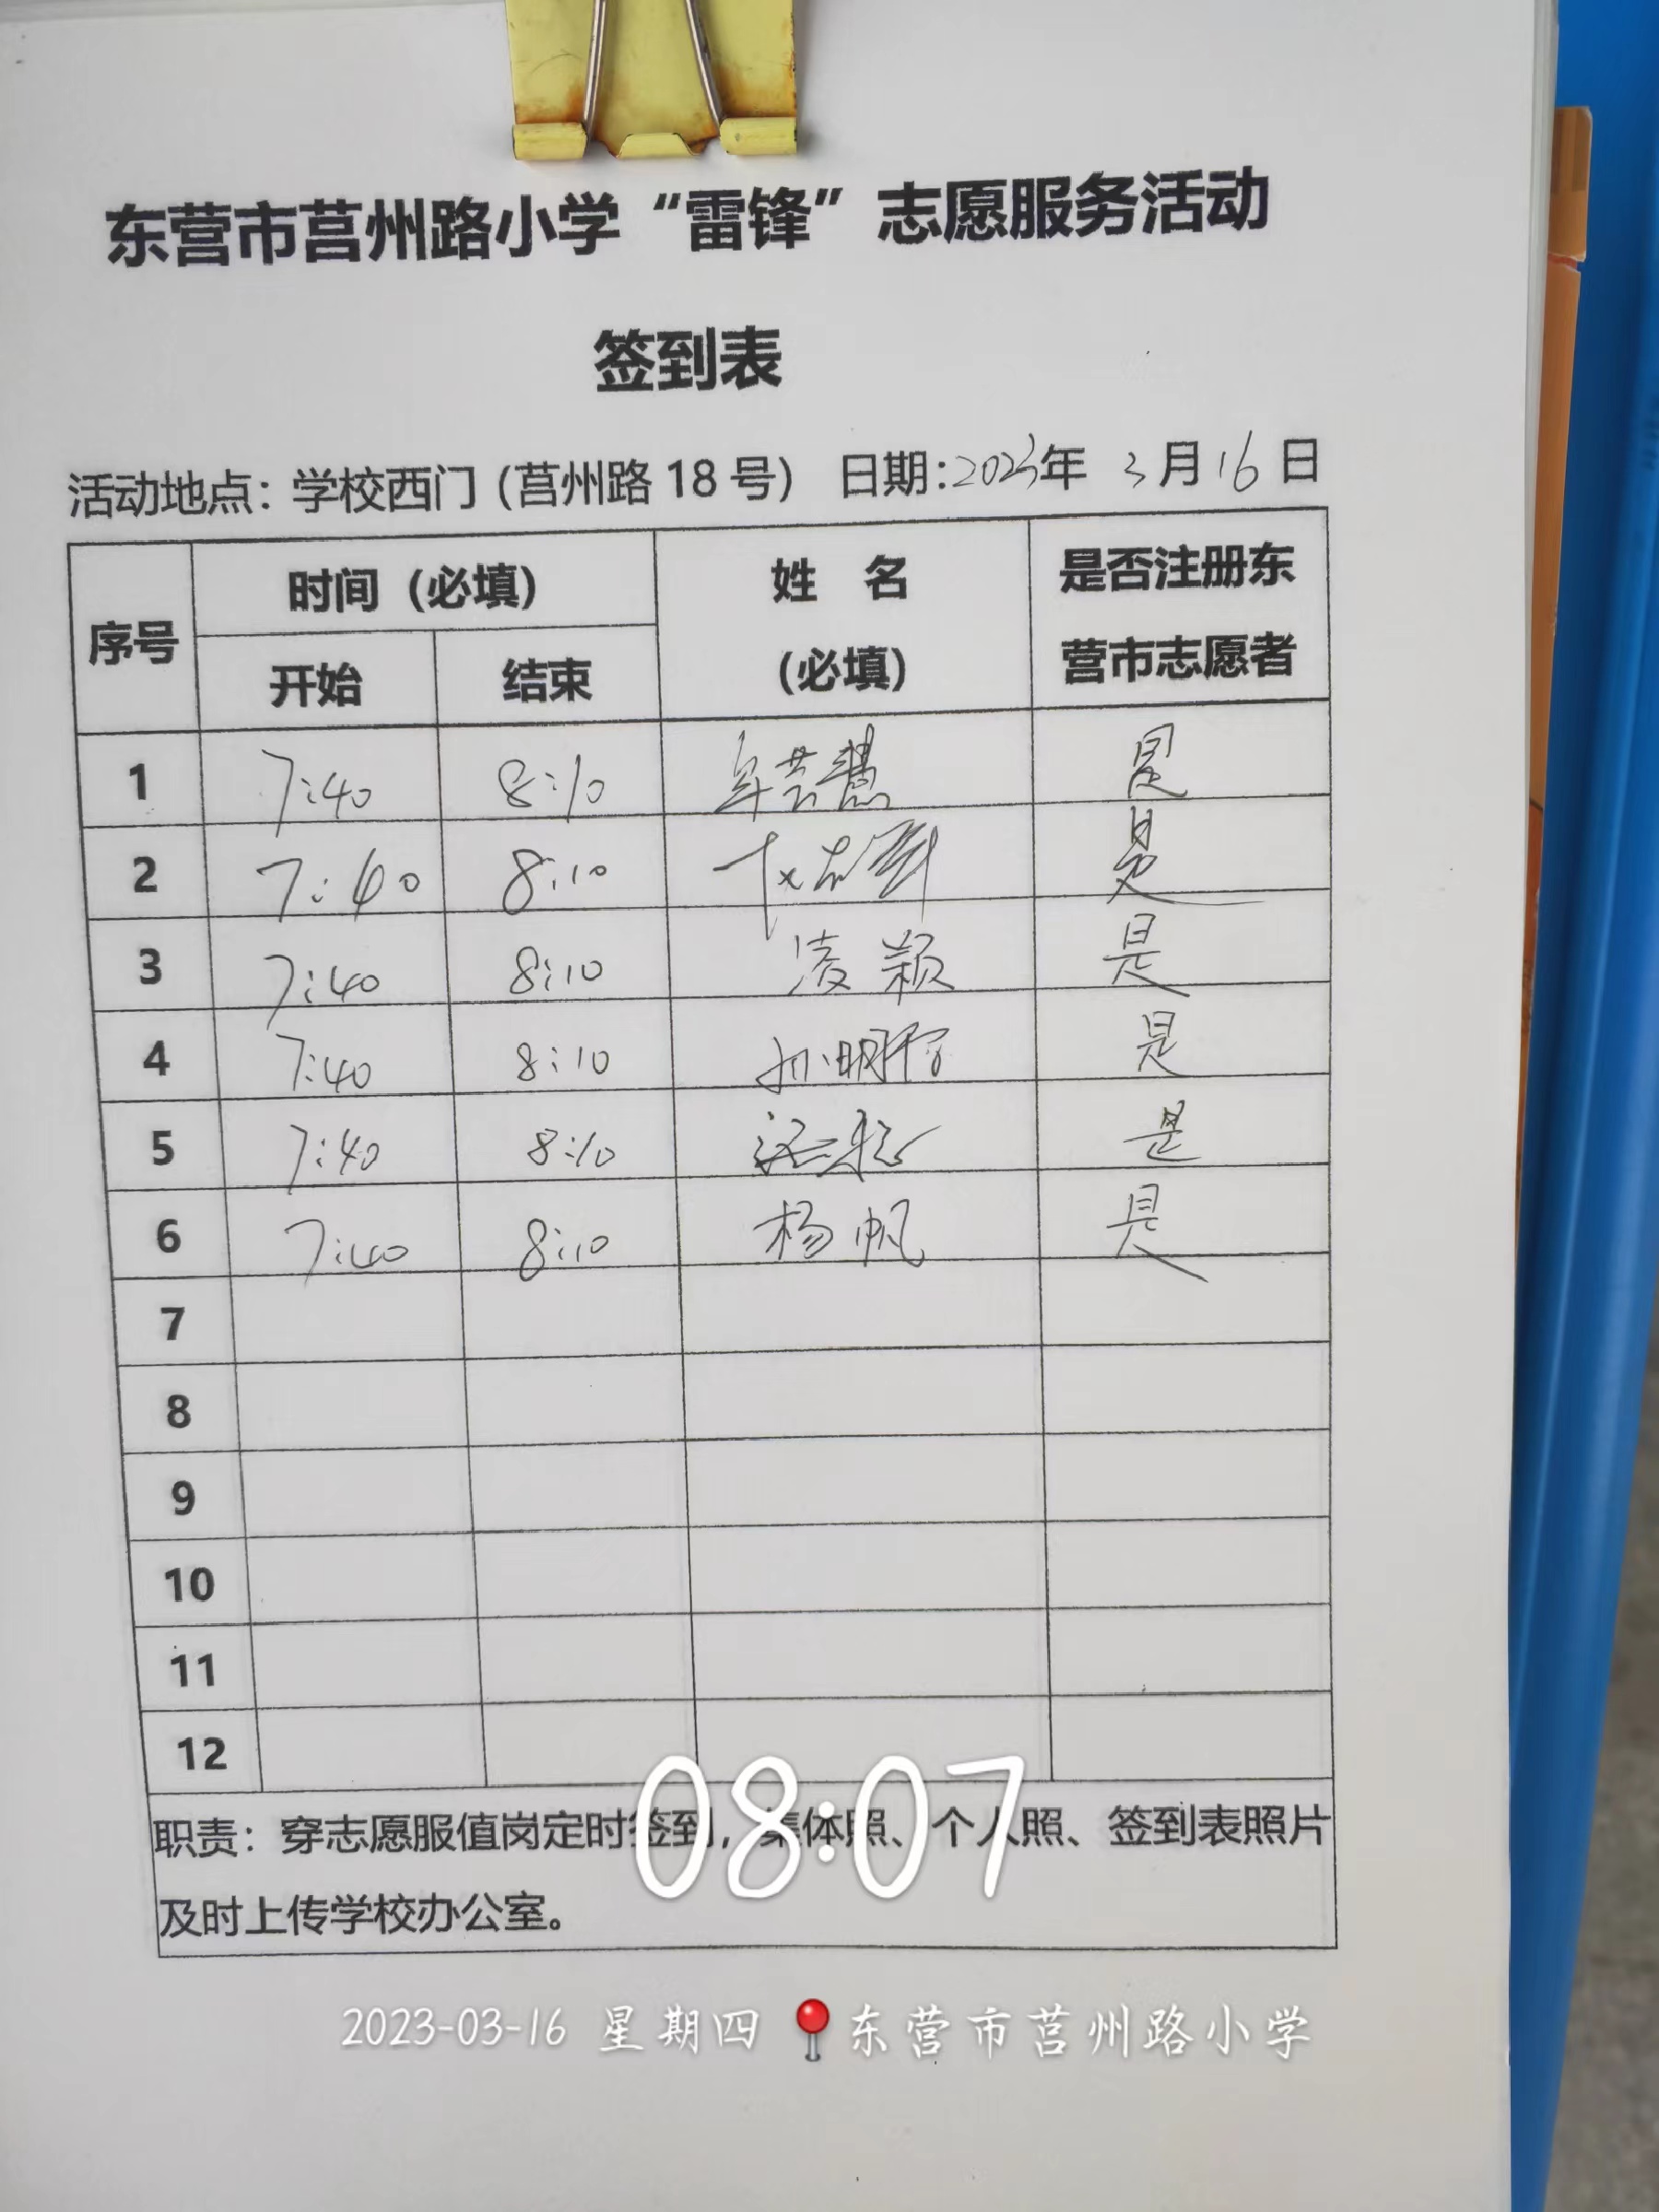 东营市莒州路小学“雷锋”志愿服务活动
签到表
活动地点：学校西门（莒州路 18 号） 日期：2023年 3月 16日
序号 时间（必填） 姓 名（必填） 是否注册东营市志愿者
开始 结束
1 7:40 8:10 是
2 7:40 8:10 是
3 7:40 8:10 凌颖 是
4 7:40 8:10 孙明 是
5 7:40 8:10 是
6 7:40 8:10 杨帆 是
7
8
9
10
11
12
职责：穿志愿服值岗定时签到，集体照、个人照、签到表照片
及时上传学校办公室。
08:07
2023-03-16 星期四 东营市莒州路小学